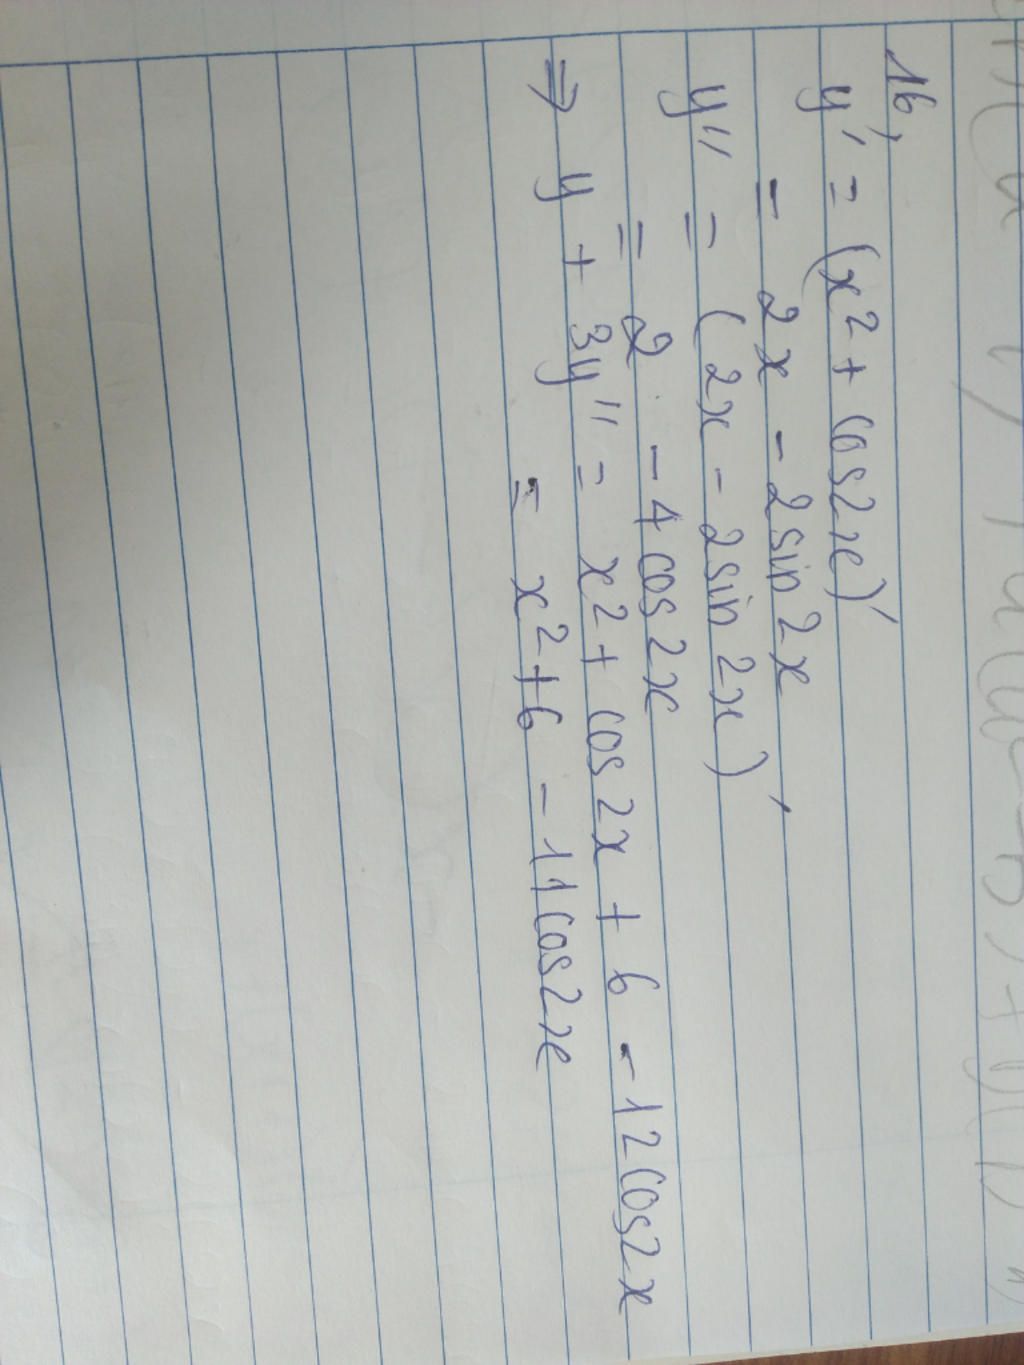 16,
y' = (x² + cos2x)'
= 2x - 2sin2x
y'' = (2x - 2sin2x)'
= 2 - 4cos2x
⇒ y + 3y'' = x² + cos2x + 6 - 12cos2x
= x² + 6 - 11cos2x